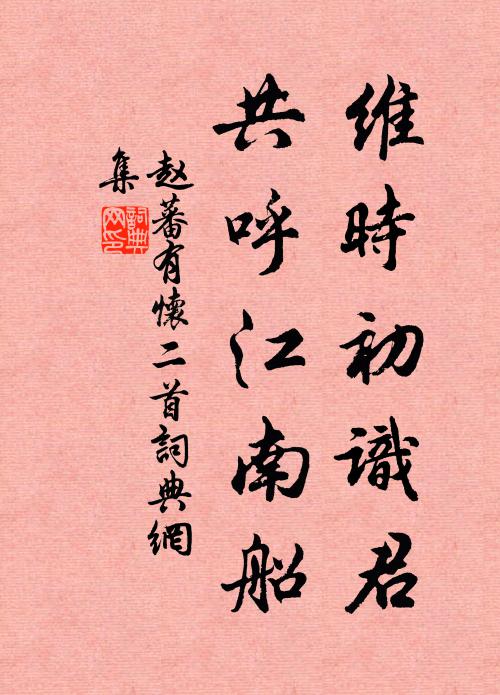 維時初識君
共呼江南船
赵蕃有懷二首詞典網
集
詞典
网印